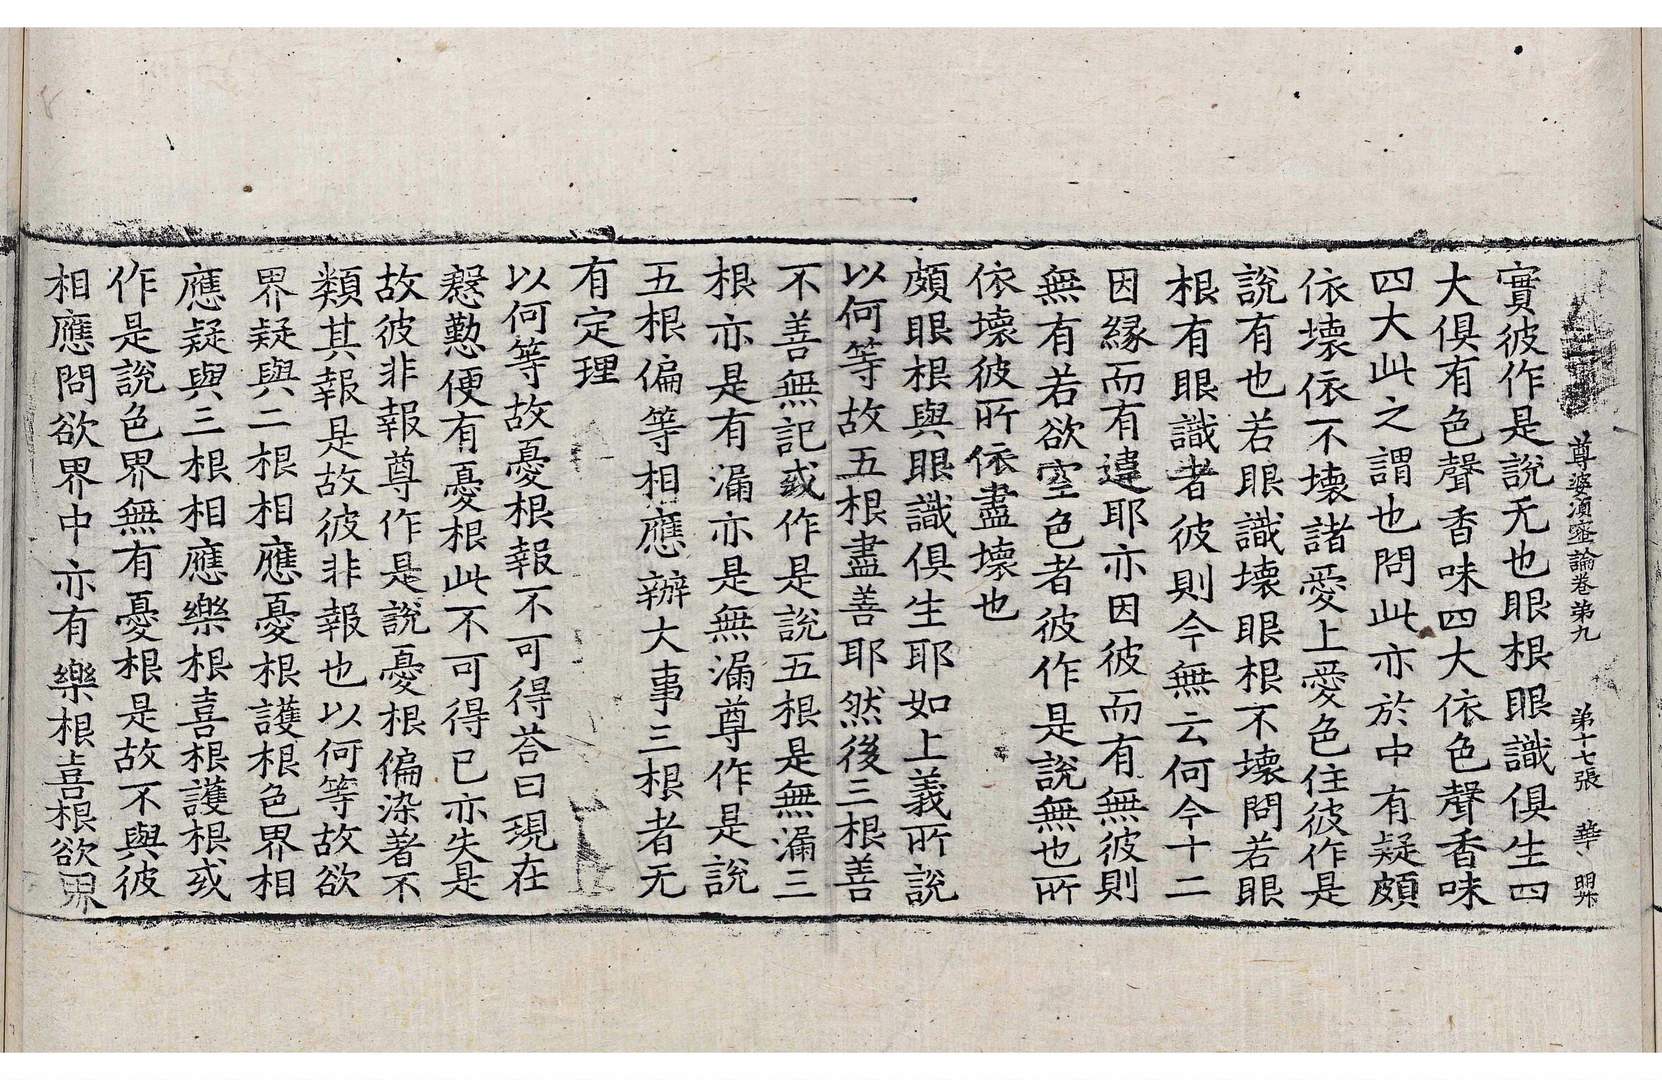 尊婆湏蜜論卷第九　第十七張　華　明
實彼作是說无也眼根眼識俱生四
大俱有色聲香味四大依色聲香味
四大此之謂也問此亦於中有疑頗
依壞依不壞諸愛上愛色住彼作是
說有也若眼識壞眼根不壞問若眼
根有眼識者彼則今無云何今十二
因緣而有違耶亦因彼而有無彼則
無有若欲空色者彼作是說無也所
依壞彼所依盡壞也
頗眼根與眼識俱生耶如上義所說
以何等故五根盡善耶然後三根善
不善無記或作是說五根是無漏三
根亦是有漏亦是無漏尊作是說
五根偏等相應辦大事三根者无
有定理
以何等故憂根報不可得荅曰現在
慇懃便有憂根此不可得已亦失是
故彼非報尊作是說憂根偏染著不
類其報是故彼非報也以何等故欲
界疑與二根相應憂根護根色界相
應疑與三根相應樂根喜根護根或
作是說色界無有憂根是故不與彼
相應問欲界中亦有樂根喜根欲界